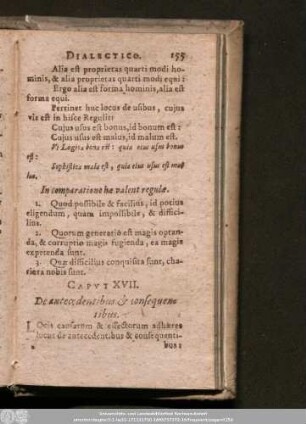 DIALECTICO. 155
Alia est proprietas quarti modi ho-
minis, & alia proprietas quarti modi equi:
Ergo alia est forma hominis, alia est
forma equi.
Pertinet huc locus de usibus, cujus
vis est in hisce Regulis:
Cujus usus est bonus, id bonum est:
Cujus usus est malus, id malum est.
Vt Logica bona est: quia eius usus bonus
est:
Sophistica mala est, quia eius usus est ma-
lus.
In comparatione hæ valent regulæ.
1. Quod possibile & facilius, id potius
eligendum, quam impossibile, & diffici-
lius.
2. Quorum generatio est magis optan-
da, & corruptio magis fugienda, ea magis
expetenda sunt.
3. Quæ difficilius conquisita sunt, cha-
riora nobis sunt.
CAPVT XVII.
De antecedentibus & consequen-
tibus.
LOcis causarum & effectorum adhæret
locus de antecedentibus & consequenti-